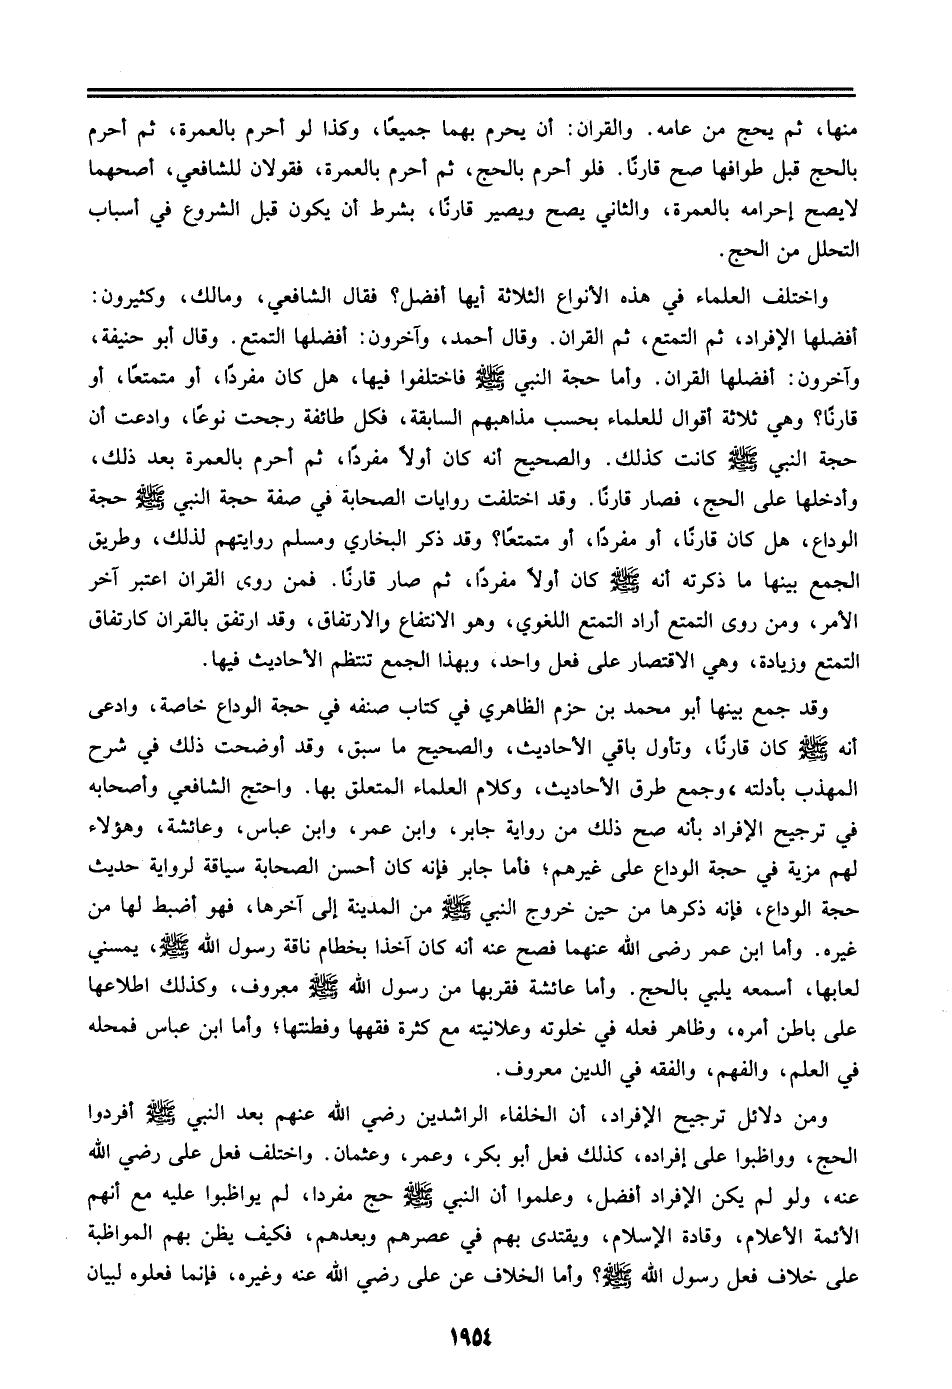 منها، ثم يحج من عامه. والقران: أن يحرم بهما جميعًا، وكذا لو أحرم بالعمرة، ثم أحرم
بالحج قبل طوافها صح قارنًا. فلو أحرم بالحج، ثم أحرم بالعمرة، فقولان للشافعي، أصحهما
لايصح إحرامه بالعمرة، والثاني يصح ويصير قارنًا، بشرط أن يكون قبل الشروع في أسباب
التحلل من الحج.
واختلف العلماء في هذه الأنواع الثلاثة أيها أفضل؟ فقال الشافعي، ومالك، وكثيرون:
أفضلها الإفراد، ثم التمتع، ثم القران. وقال أحمد، وآخرون: أفضلها التمتع. وقال أبو حنيفة،
وآخرون: أفضلها القران. وأما حجة النبي ﷺ فاختلفوا فيها، هل كان مفردًا، أو متمتعًا، أو
قارنًا؟ وهي ثلاثة أقوال للعلماء بحسب مذاهبهم السابقة، فكل طائفة رجحت نوعًا، وادعت أن
حجة النبي ﷺ كانت كذلك. والصحيح أنه كان أولاً مفردًا، ثم أحرم بالعمرة بعد ذلك،
وأدخلها على الحج، فصار قارنًا. وقد اختلفت روايات الصحابة في صفة حجة النبي ﷺ حجة
الوداع، هل كان قارنًا، أو مفردًا، أو متمتعًا؟ وقد ذكر البخاري ومسلم روايتهم لذلك، وطريق
الجمع بينها ما ذكرته أنه ﷺ كان أولاً مفردًا، ثم صار قارنًا. فمن روى القران اعتبر آخر
الأمر، ومن روى التمتع أراد التمتع اللغوي، وهو الانتفاع والارتفاق، وقد ارتفق بالقران كارتفاق
التمتع وزيادة، وهي الاقتصار على فعل واحد، وبهذا الجمع تنتظم الأحاديث فيها.
وقد جمع بينها أبو محمد بن حزم الظاهري في كتاب صنفه في حجة الوداع خاصة، وادعى
أنه ﷺ كان قارنًا، وتأول باقي الأحاديث، والصحيح ما سبق، وقد أوضحت ذلك في شرح
المهذب بأدلته ،وجمع طرق الأحاديث، وكلام العلماء المتعلق بها. واحتج الشافعي وأصحابه
في ترجيح الإفراد بأنه صح ذلك من رواية جابر، وابن عمر، وابن عباس، وعائشة، وهؤلاء
لهم مزية في حجة الوداع على غيرهم؛ فأما جابر فإنه كان أحسن الصحابة سياقة لرواية حديث
حجة الوداع، فإنه ذكرها من حين خروج النبي ﷺ من المدينة إلى آخرها، فهو أضبط لها من
غيره. وأما ابن عمر رضى الله عنهما فصح عنه أنه كان آخذا بخطام ناقة رسول الله ﷺ، يمسني
لعابها، أسمعه يلبي بالحج. وأما عائشة فقربها من رسول الله ﷺ معروف، وكذلك اطلاعها
على باطن أمره، وظاهر فعله في خلوته وعلانيته مع كثرة فقهها وفطنتها؛ وأما ابن عباس فمحله
في العلم، والفهم، والفقه في الدين معروف.
ومن دلائل ترجيح الإفراد، أن الخلفاء الراشدين رضي الله عنهم بعد النبي ﷺ أفردوا
الحج، وواظبوا على إفراده، كذلك فعل أبو بكر، وعمر، وعثمان. واختلف فعل على رضي الله
عنه، ولو لم يكن الإفراد أفضل، وعلموا أن النبي ﷺ حج مفردا، لم يواظبوا عليه مع أنهم
الأئمة الأعلام، وقادة الإسلام، ويقتدى بهم في عصرهم وبعدهم، فكيف يظن بهم المواظبة
على خلاف فعل رسول الله ﷺ؟ وأما الخلاف عن على رضي الله عنه وغيره، فإنما فعلوه لبيان
١٩٥٤